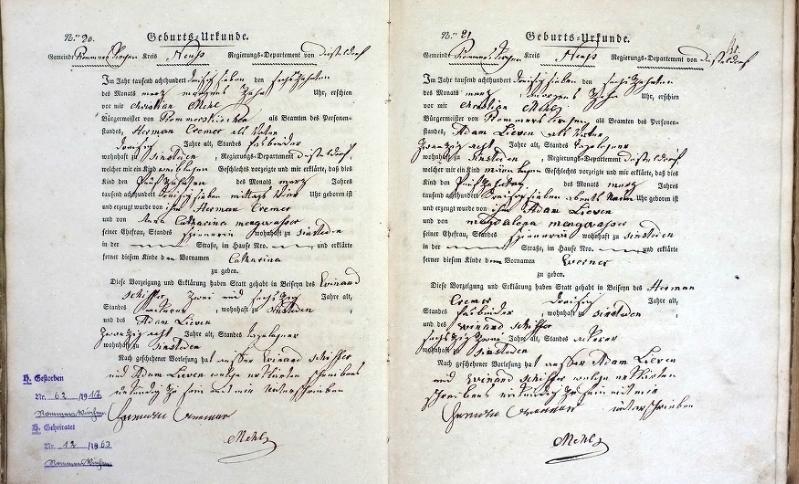 Nr. 20.
Geburts-Urkunde.
Gemeinde Rommerskirchen Kreis Neuß Regierungs-Departement von Düsseldorf
Im Jahr tausend achthundert dreisig sieben den sechszehnten
des Monats merz morgens Zehn Uhr, erschien
vor mir Christian Mehl
Bürgermeister von Rommerskirchen als Beamten des Personen-
standes, Herman Cremer als Vater
dreisig Jahre alt, Standes fasbinder
wohnhaft zu Sinsteden, Regierungs-Departement Düsseldorf,
welcher mir ein Kind weiblichen Geschlechts vorzeigte und mir erklärte, daß dies
Kind den fünfzehnten des Monats merz Jahrs
tausend achthundert dreisig sieben mittags vier Uhr geboren ist
und erzeugt wurde von ihm Herman Cremer
und von Anna Catharina mengwasser
seiner Ehefrau, Standes wohnhaft zu Sinsteden
in der Straße, im Hause Nro. und erklärte
ferner diesem Kinde den Vornamen Catharina
zu geben.
Diese Vorzeigung und Erklärung haben Statt gehabt in Beiseyn des Winand
Schiffer Zwei und sechszig Jahre alt,
Standes ackerer, wohnhaft zu Sinsteden
und des Adam Lieven
Zwanzig acht Jahre alt, Standes taglöhner
wohnhaft zu Sinsteden
Nach geschehener Vorlesung hat ausser Winard Schiffer
und Adam Lieven welche erklärten schreibens
unkundig zu sein mit mir unterschrieben
Mehl
H. Gestorben
Nr. 62 /1917
Rommerskirchen
H. Geheiratet
Nr. 12 /1863
Rommerskirchen
Nr. 21
Geburts-Urkunde.
Gemeinde Rommerskirchen Kreis Neuß Regierungs-Departement von Düsseldorf
Im Jahr tausend achthundert dreisig sieben den sechszehnten
des Monats merz morgens Zehn Uhr, erschien
vor mir Christian Mehl
Bürgermeister von Rommerskirchen als Beamten des Personen-
standes, Adam Lieven als Vater
Zwanzig acht Jahre alt, Standes taglöhner
wohnhaft zu Sinsteden, Regierungs-Departement Düsseldorf,
welcher mir ein Kind Geschlechts vorzeigte und mir erklärte, daß dies
Kind den des Monats merz Jahrs
tausend achthundert dreisig sieben abends Uhr geboren ist
und erzeugt wurde von ihm Adam Lieven
und von Magdalena mengwasser
seiner Ehefrau, Standes wohnhaft zu Sinsteden
in der Straße, im Hause Nro. und erklärte
ferner diesem Kinde den Vornamen Werner
zu geben.
Diese Vorzeigung und Erklärung haben Statt gehabt in Beiseyn des Herman
Cremer dreisig Jahre alt,
Standes fasbinder, wohnhaft zu Sinsteden
und des Winard Schiffer
sechszig zwei Jahre alt, Standes ackerer
wohnhaft zu Sinsteden
Nach geschehener Vorlesung hat ausser Adam Lieven
und Winard Schiffer welche erklärten
schreibens unkundig zu sein mit mir
unterschrieben
Mehl